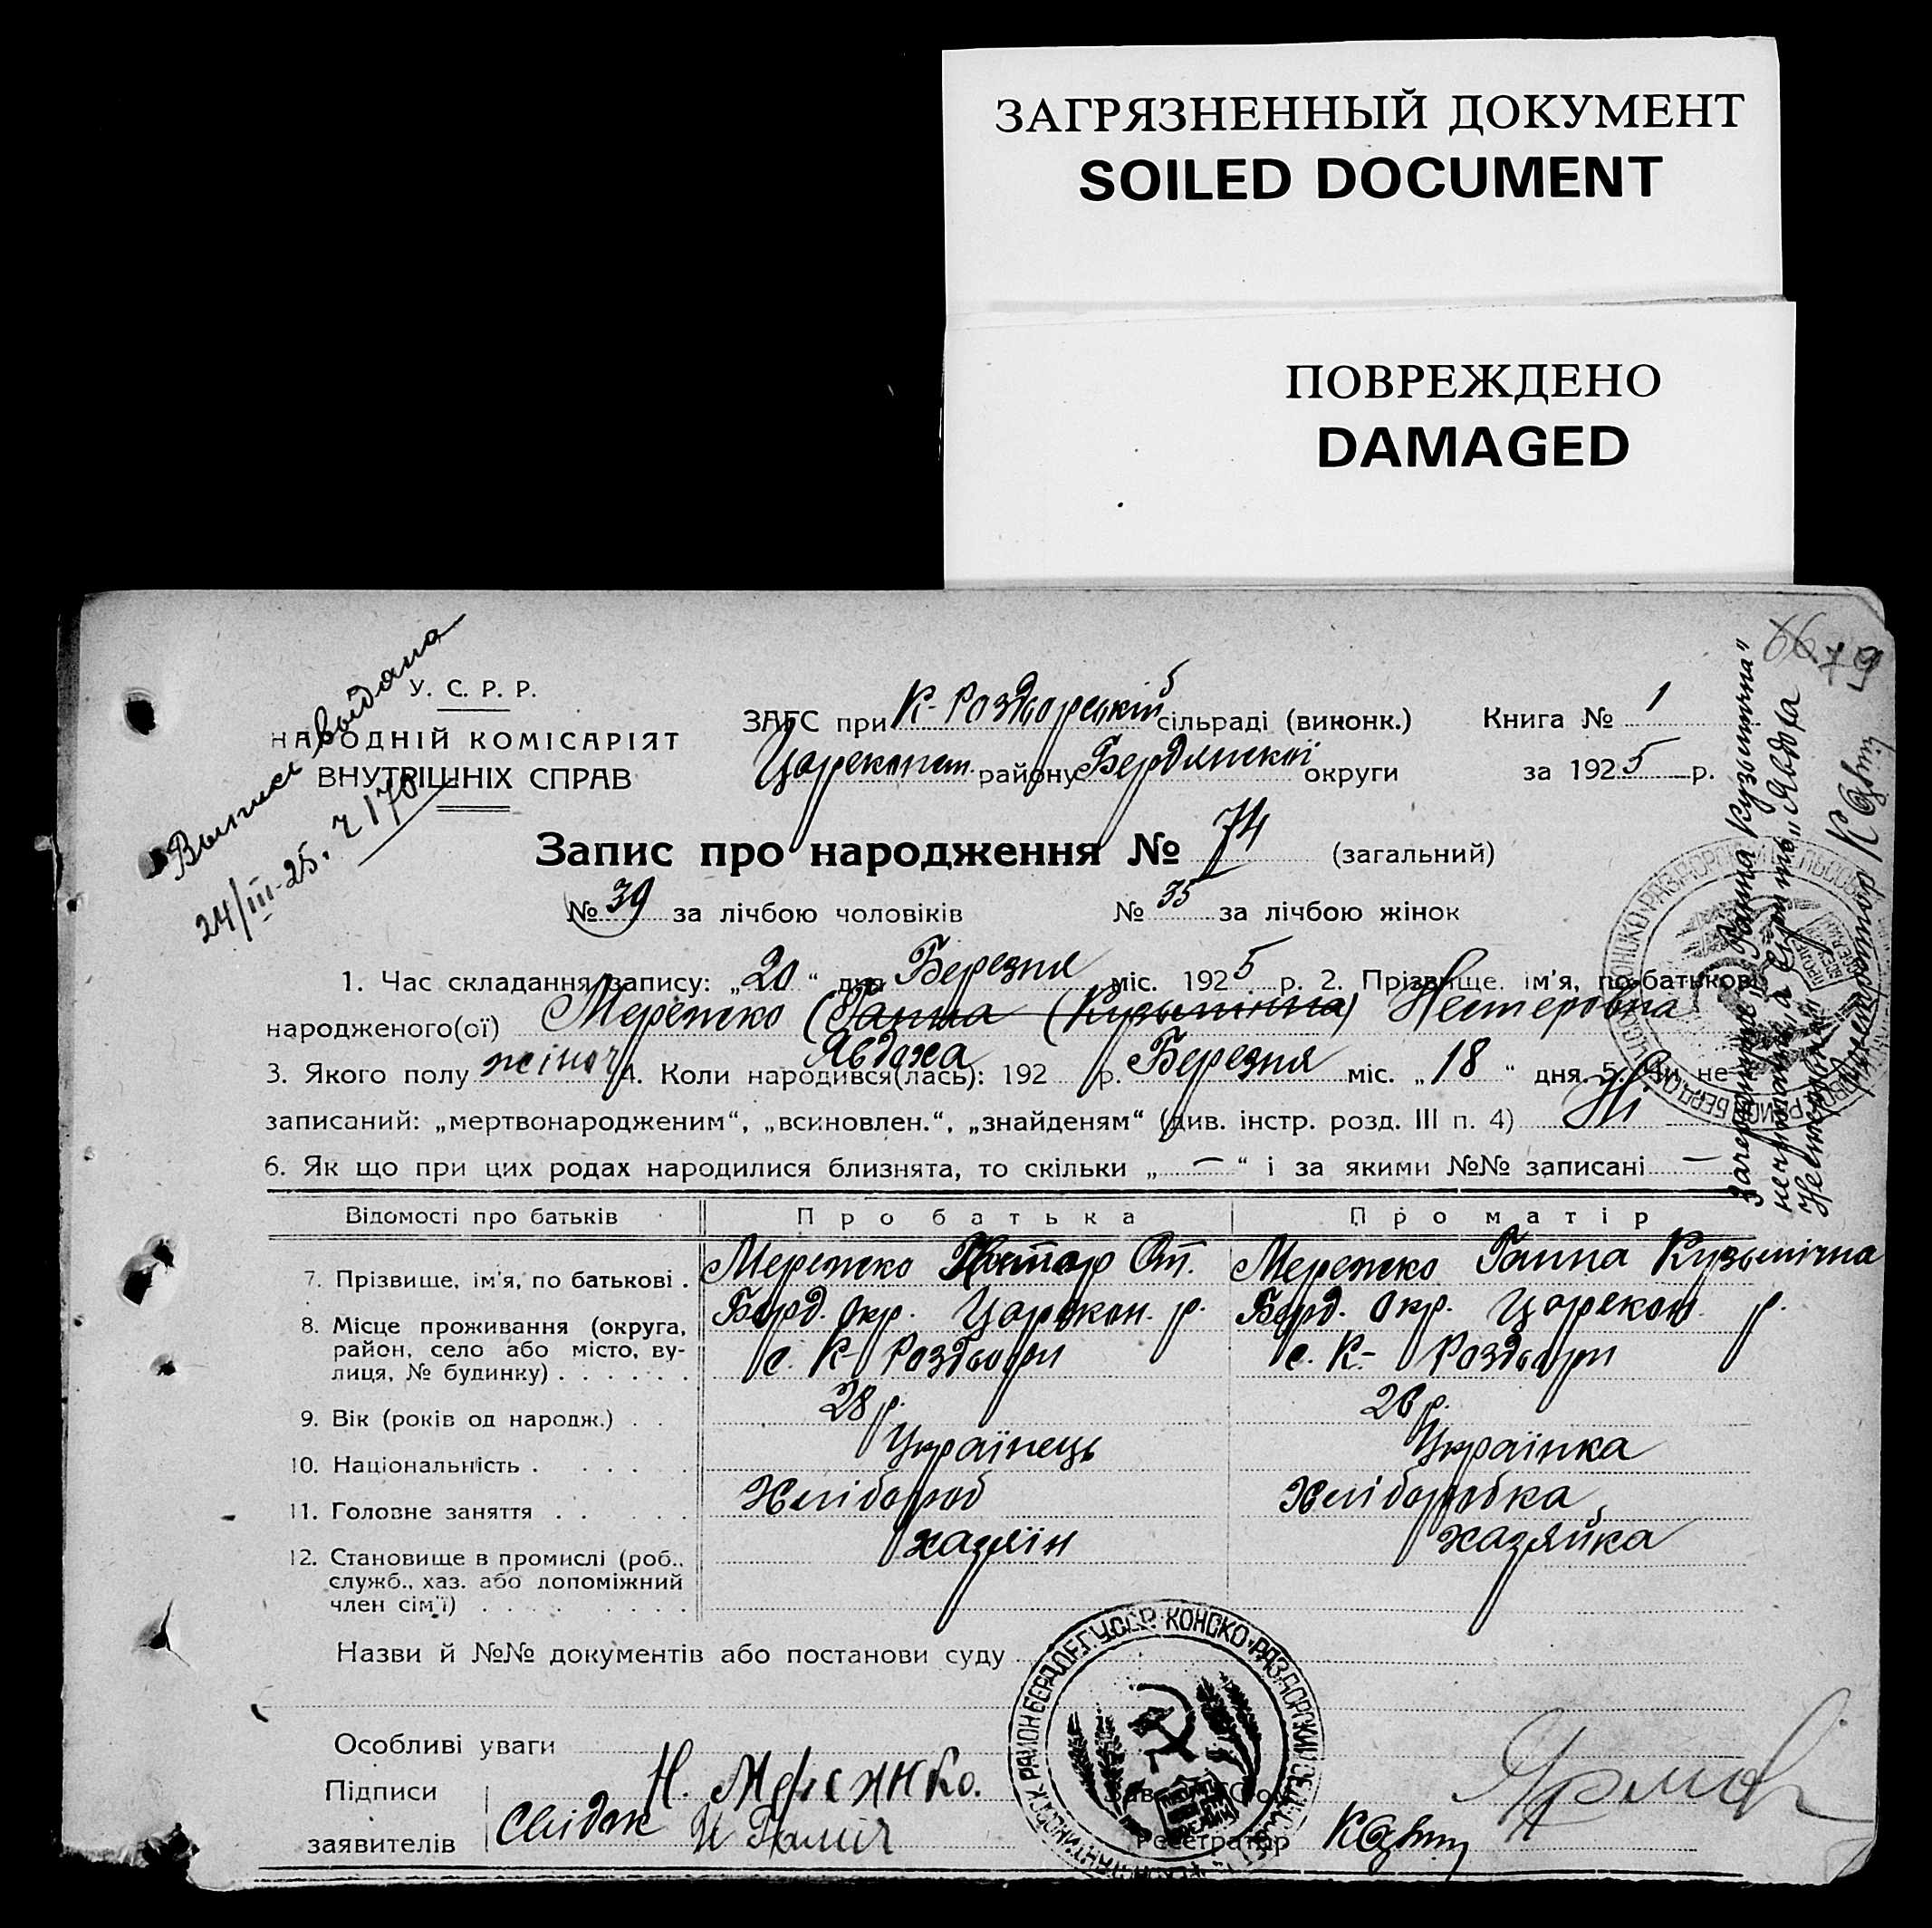 ЗАГРЯЗНЕННЫЙ ДОКУМЕНТ
SOILED DOCUMENT
ПОВРЕЖДЕНО
DAMAGED
66 79
Выпись выдана
24/III-25. 2170
У. С. Р. Р.
НАРОДНІЙ КОМІСАРІЯТ
ВНУТРІШНІХ СПРАВ
ЗАГС при К-Роздорській сільраді (виконк.) Книга № 1
Царекопст. району Бердянської округи за 1925 р.
Запис про народження № 74 (загальний)
№ 39 за лічбою чоловіків № 35 за лічбою жінок
1. Час складання запису: „20“ дня Березня міс. 1925 р. 2. Прізвище, ім'я, по-батькові
народженого(ої) Мережко (Ганна (Кузьмінна) Нестеровна
Явдоха
3. Якого полу жіноч 4. Коли народився(лась): 192 р. Березня міс. „18“ дня. 5. Чи не
записаний: „мертвонародженим“, „всиновлен.“, „знайденям“ (див. інстр. розд. III п. 4) Ні
6. Як що при цих родах народилися близнята, то скільки „—“ і за якими №№ записані —
Зачеркнуте „Ганна Кузьминна“
нечитать, а читать „Явдоха
Нестеровна“
Реєстратор
Відомості про батьків Про батька Про матір
7. Прізвище, ім'я, по батькові . Мережко Нестор От. Мережко Ганна Кузьмічна
8. Місце проживання (округа, район, село або місто, вулиця, № будинку) . . . . . . Берд. Окр. Царекон. р. Берд. Окр. Царекон. р.
с. К-Роздори с. К-Роздори
9. Вік (років од народж.) . . 28 р. 26 р.
10. Національність . . . . . Українець Українка
11. Головне заняття . . . . . Хлібороб Хліборобка
12. Становище в промислі (роб., служб., хаз. або допоміжний член сім'ї) . . . . . . . хазяїн хазяйка
Назви й №№ документів або постанови суду
Особливі уваги
Підписи
заявителів
Н. Мережко.
Свідок
Зав. ЗАГС'ом
Реєстратор